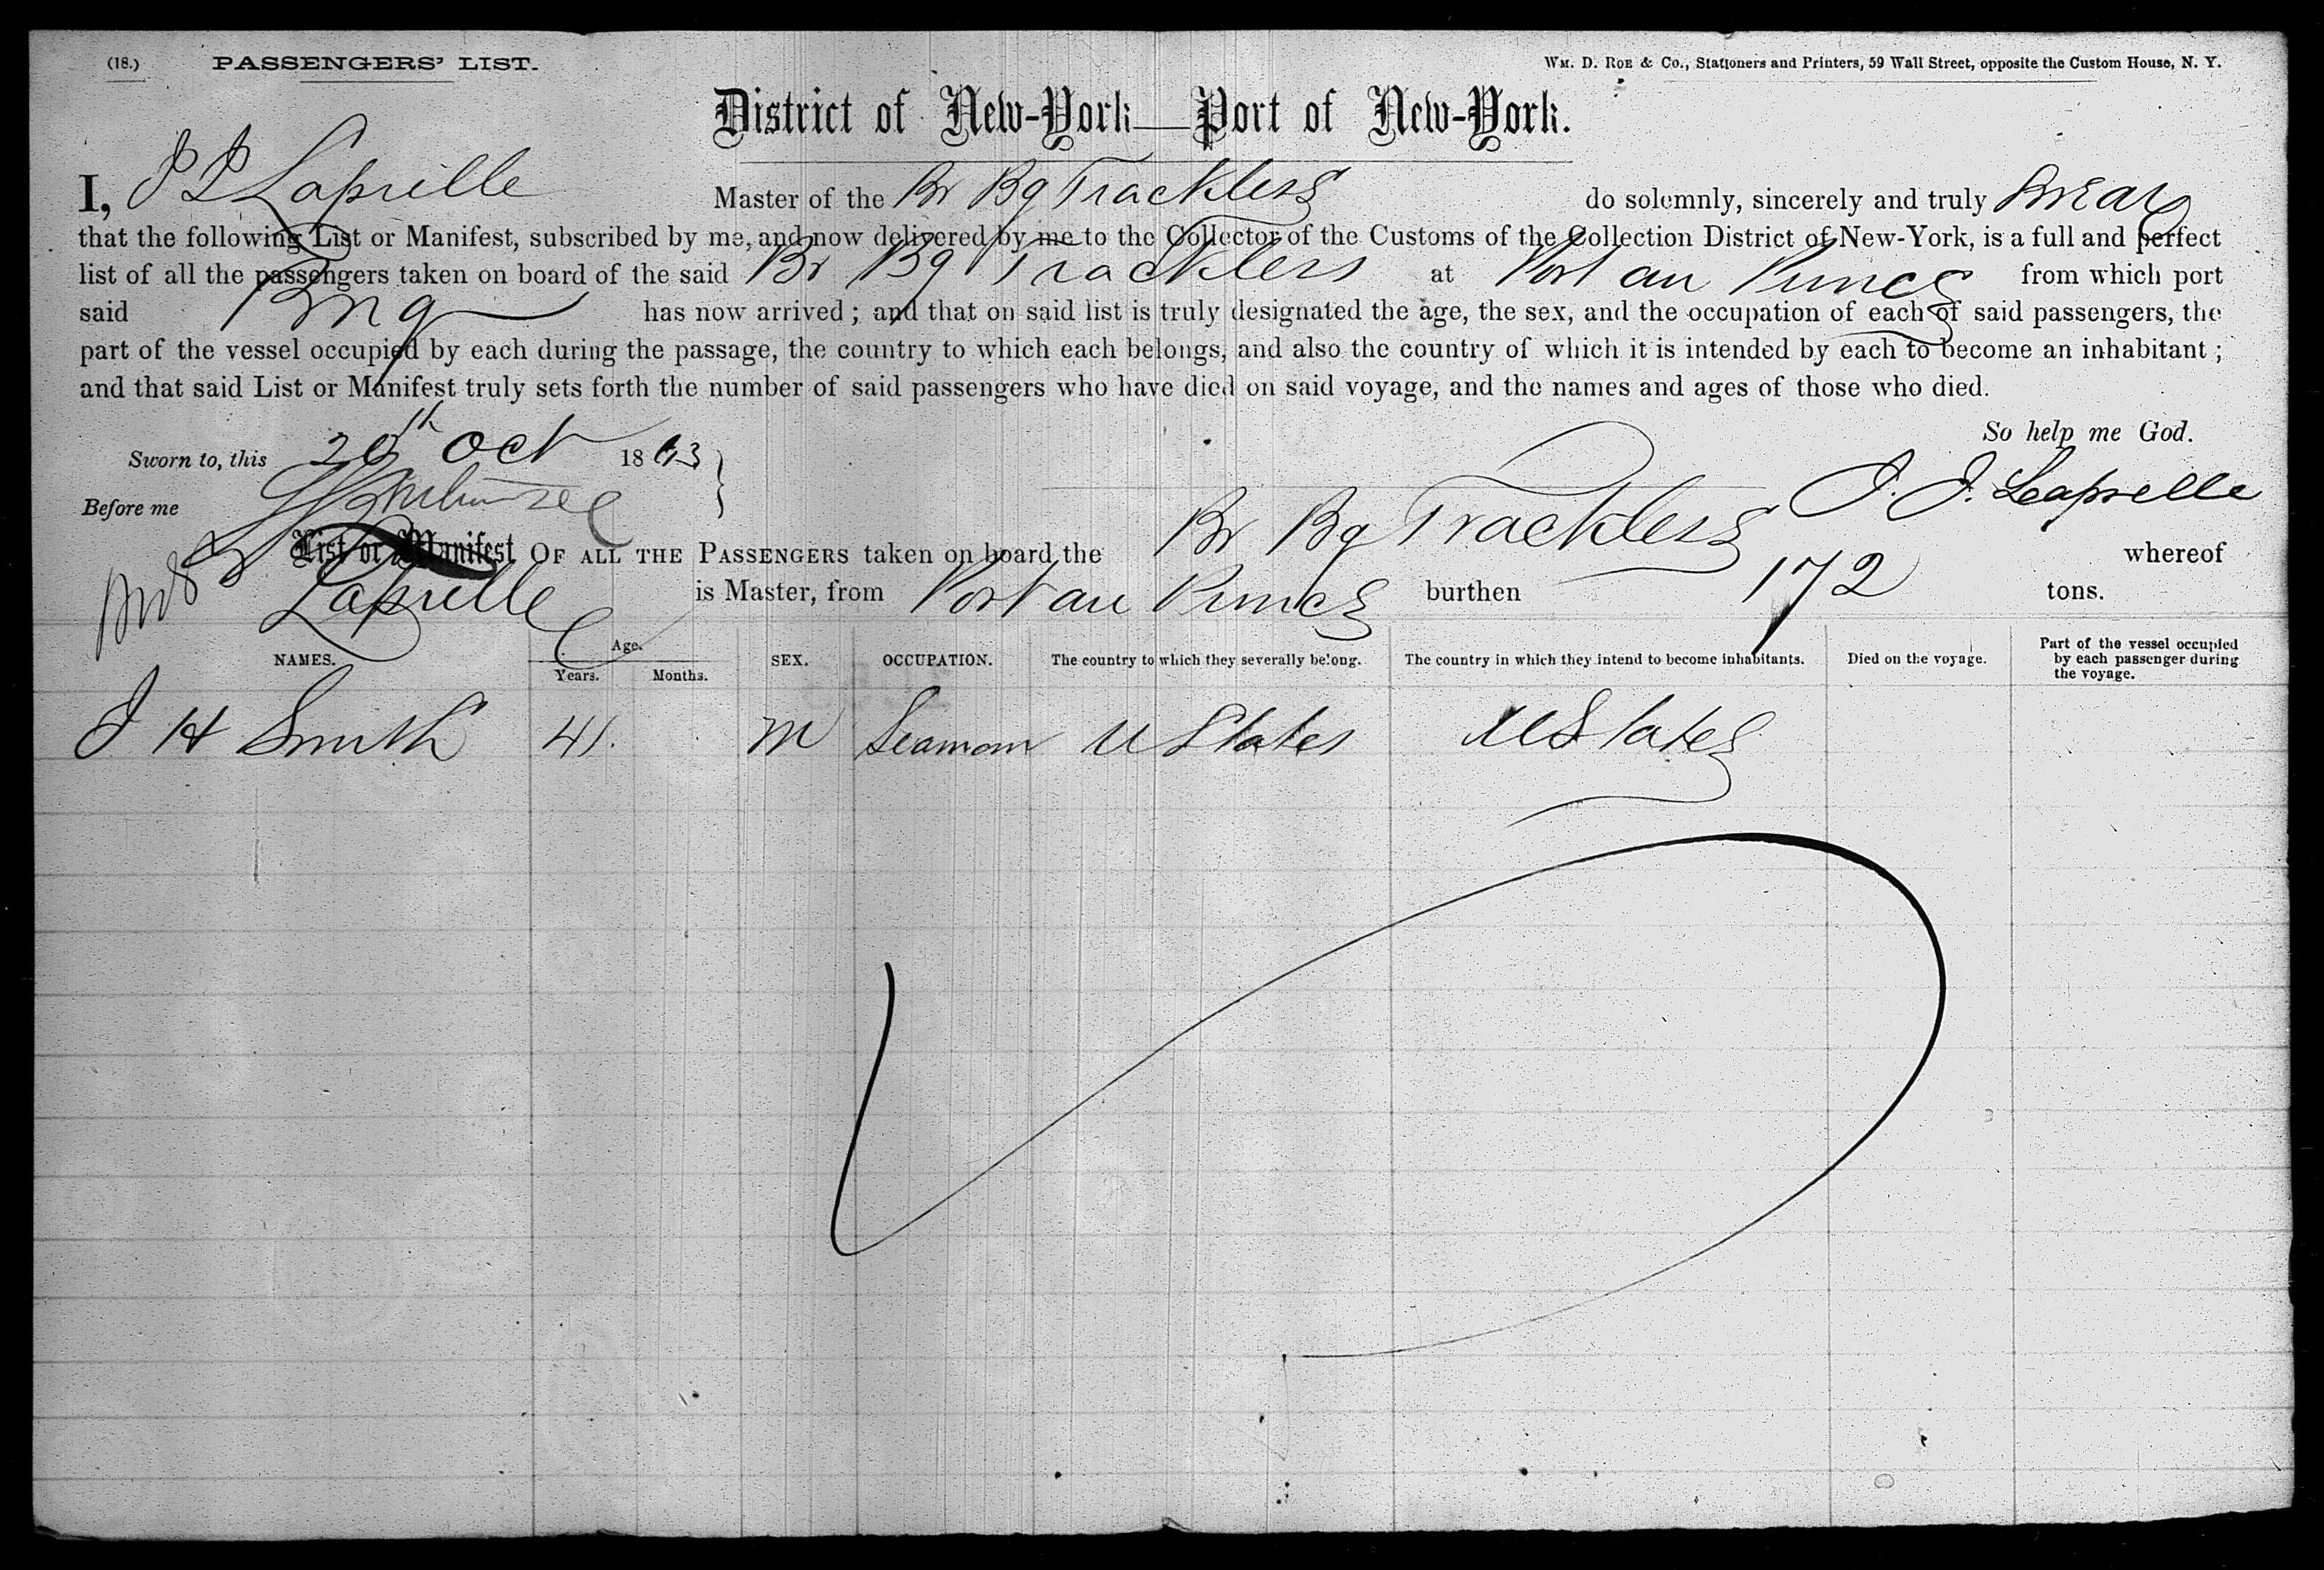 (18.) PASSENGERS' LIST. WM. D. ROE & Co., Stationers and Printers, 59 Wall Street, opposite the Custom House, N. Y.
District of New-York—Port of New-York.
I, J J Lapsielle Master of the Br Bg Trackless do solemnly, sincerely and truly Swear
that the following List or Manifest, subscribed by me, and now delivered by me to the Collector of the Customs of the Collection District of New-York, is a full and perfect
list of all the passengers taken on board of the said Br Bg Trackless at Port au Prince from which port
said Brig has now arrived; and that on said list is truly designated the age, the sex, and the occupation of each of said passengers, the
part of the vessel occupied by each during the passage, the country to which each belongs, and also the country of which it is intended by each to become an inhabitant;
and that said List or Manifest truly sets forth the number of said passengers who have died on said voyage, and the names and ages of those who died.
So help me God.
Sworn to, this 20th Oct 1863
J. J. Lapselle
Before me
List or Manifest OF ALL THE PASSENGERS taken on board the Br Bg Trackless whereof
is Master, from Port au Prince burthen 172 tons.
NAMES. Age. Years. Months. SEX. OCCUPATION. The country to which they severally belong. The country in which they intend to become inhabitants. Died on the voyage. Part of the vessel occupied by each passenger during the voyage.
J H Smith 41. M Seaman U States U States